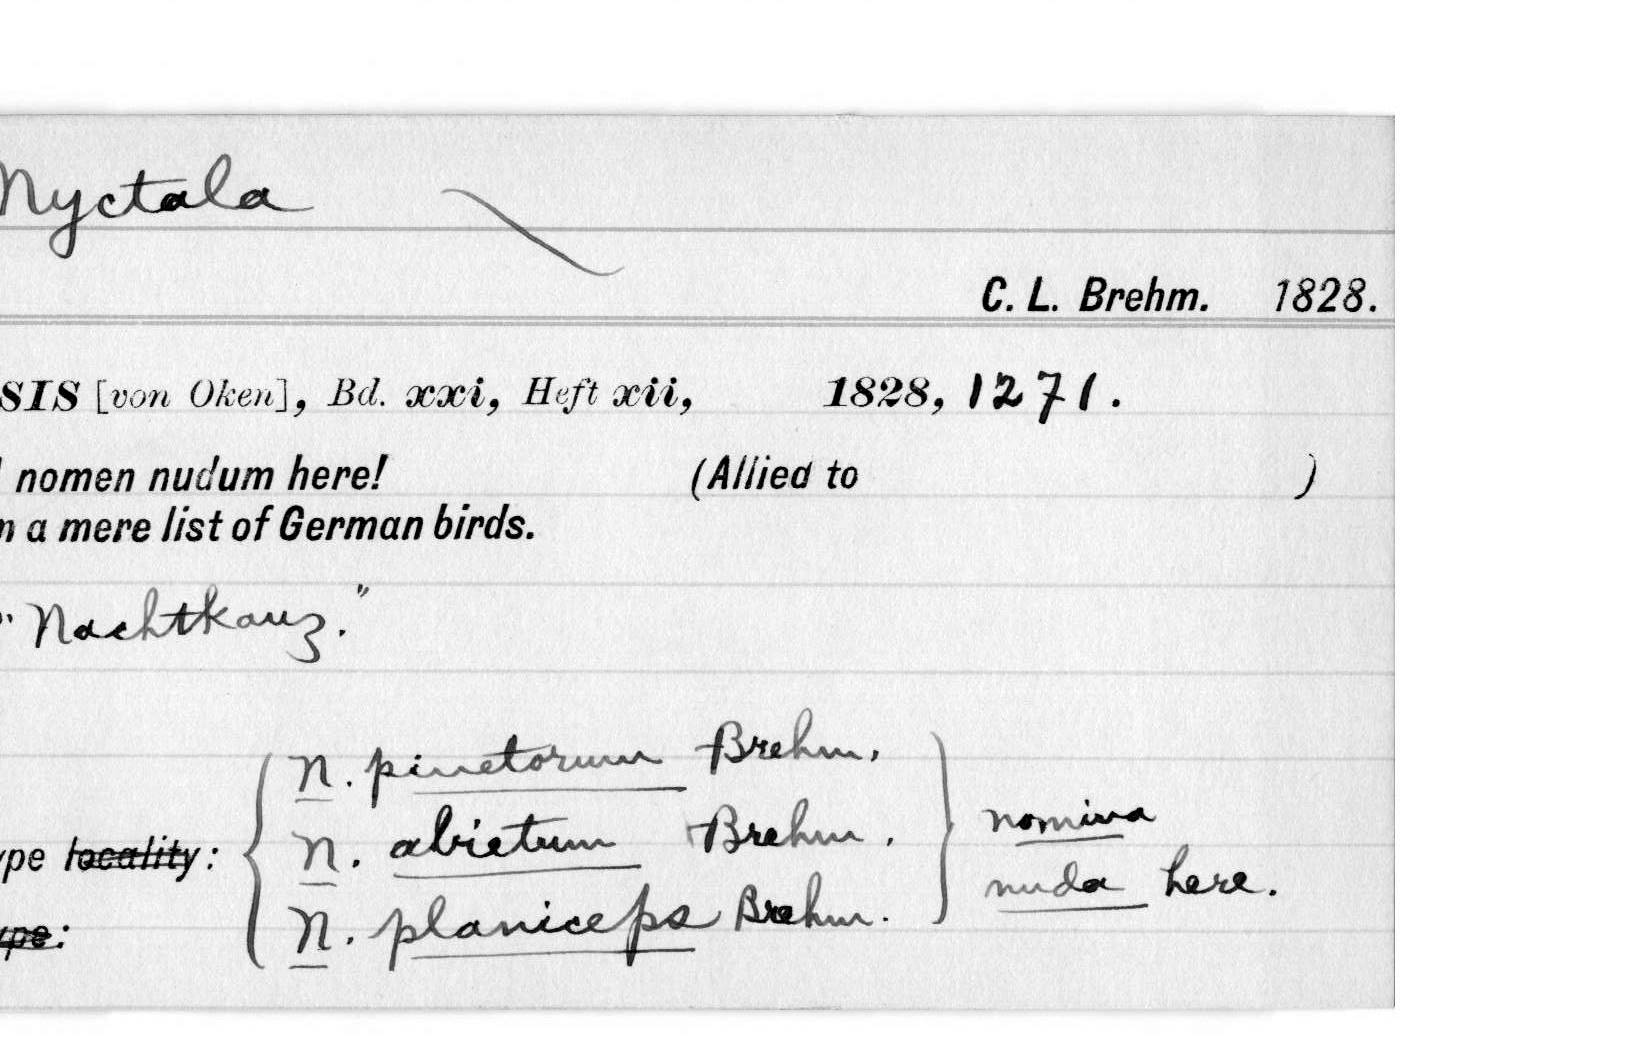 Nyctala
C. L. Brehm. 1828.
SIS [von Oken], Bd. xxi, Heft xii, 1828, 1271.
nomen nudum here! (Allied to )
n a mere list of German birds.
" Nachtkauz."
N. pinetorum Brehm.
N. abietum Brehm.
N. planiceps Brehm.
nomina
nuda here.
ype locality:
ype: